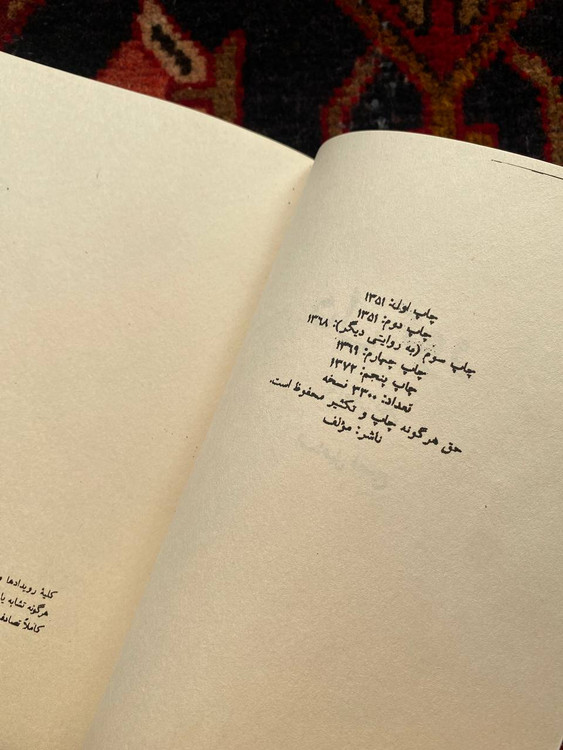 چاپ اول: ۱۳۵۱
چاپ دوم: ۱۳۵۱
چاپ سوم (به روایتی دیگر): ۱۳۶۸
چاپ چهارم: ۱۳۶۹
چاپ پنجم: ۱۳۷۲
تعداد: ۳۳۰۰ نسخه
حق هرگونه چاپ و تکثیر محفوظ است.
ناشر: مؤلف
کلیهٔ رویدادها و
هرگونه تشابه با
کاملاً تصادف